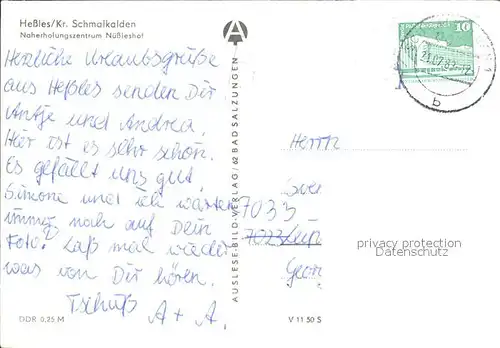 Heßles/Kr. Schmalkalden
Naherholungszentrum Nüßleshof
Herzliche Urlaubsgrüße
aus Heßles senden Dir
Antje und Andrea.
Hier ist es sehr schön.
Es gefällt uns gut.
Simone und ich warten
immer noch auf Dein
Foto. Laß mal wieder
was von Dir hören.
Tschüß
A + A.
DDR 0,25 M
A
AUSLESE-BILD-VERLAG / 62 BAD SALZUNGEN
V 11 50 S
10
21.07.83-12
b
Herrn
7033
7023 Leip
Georg
privacy protection
Datenschutz